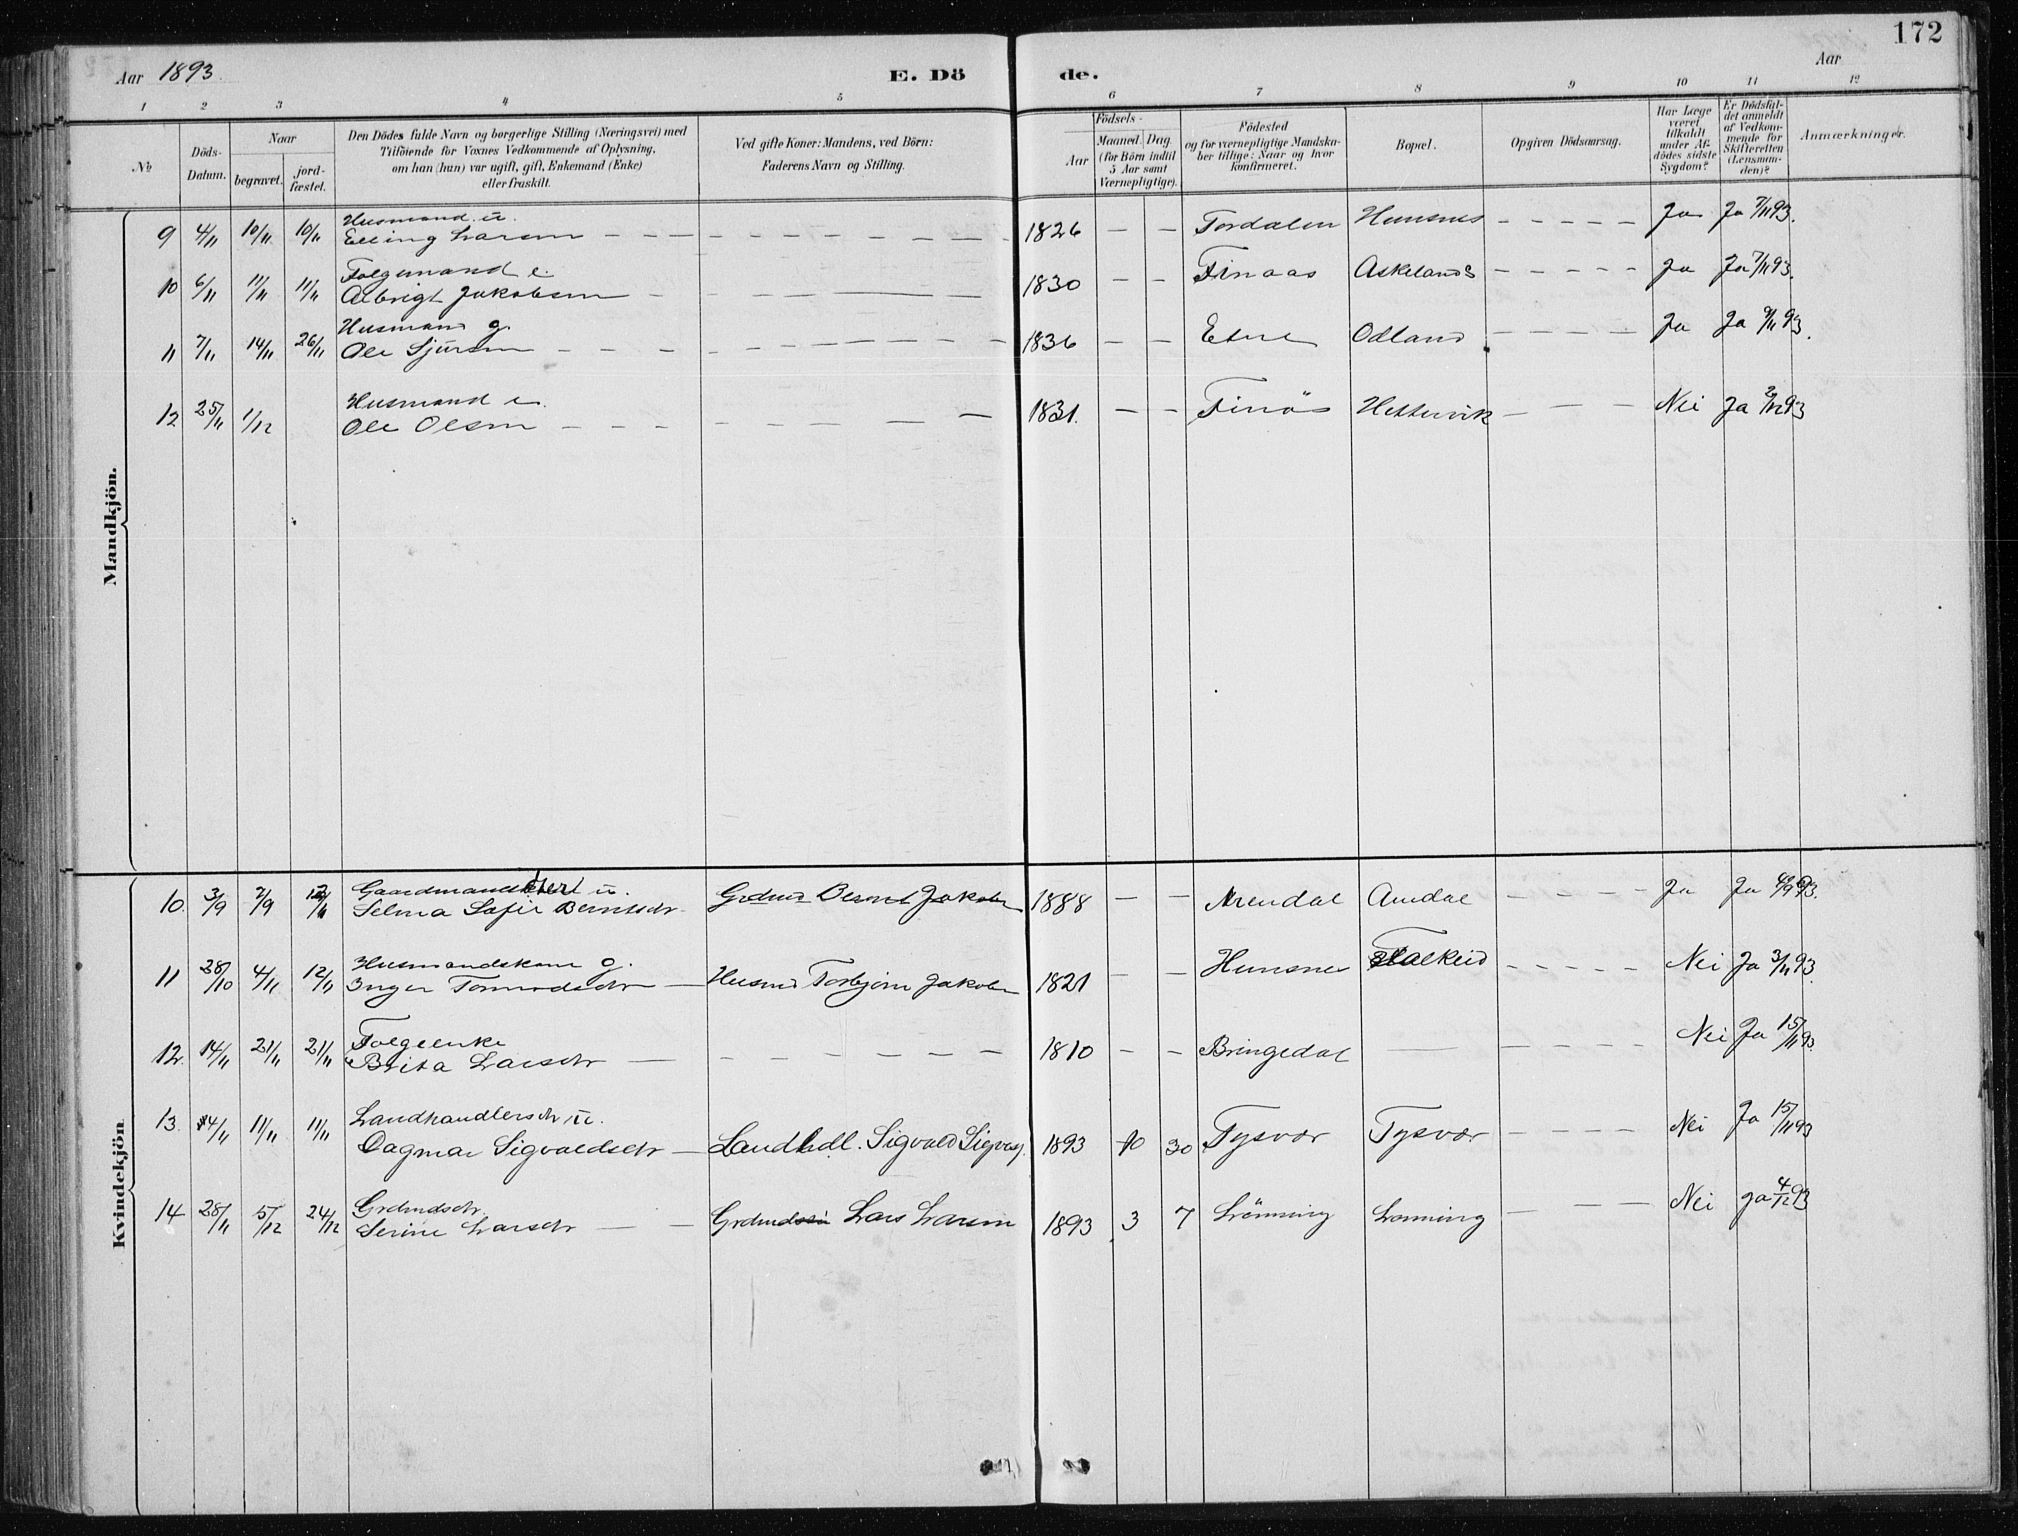 172
Aar 1893
E. Dö
de.
Aar
1 2 3 4 5 6 7 8 9 10 11 12
No
Döds-Datum.
Naar
begravet.
jord-fæstet.
Den Dödes fulde Navn og borgerlige Stilling (Næringsvei) med
Tilföiende for Voxnes Vedkommende af Oplysning,
om han (hun) var ugift, gift, Enkemand (Enke)
eller fraskilt.
Ved gifte Koner: Mandens, ved Börn:
Faderens Navn og Stilling.
Födsels-
Aar
Maaned. Dag.
(for Börn indtil
5 Aar samt
Værnepligtige).
Födested
og for værnepligtige Mandska-
ber tillige: Naar og hvor
konfirmeret.
Bopæl.
Opgiven Dödsaarsag.
Har Læge
været
tilkaldt
under Af-
dödes sidste
Sygdom?
Er Dödsfal-
det anmeldt
af Vedkom-
mende for
Skifteretten
(Lensman-
den)?
Anmærkninger.
Mandkjön.
Husmand u.
9 4/11 10/11 10/11 Elling Larsen 1826 Tordalen Hunsnes Ja Ja 7/11 93.
Folgemand e.
10 6/11 11/11 11/11 Albrigt Jakobsen 1830 Finaas Askeland Ja Ja 7/11 93.
Husmand g.
11 7/11 14/11 26/11 Ole Sjursen 1836 Etne Odland Ja Ja 9/11 93.
Husmand e.
12 25/11 1/12 Ole Olsen 1831. Finös Hettervik Nei Ja 2/12 93
Kvindekjön.
Gaardmandsdtter u.
10. 3/9 7/9 Selma Sofie Berntsdr. Grdmd Bernt Jakobsn 1888 Arendal Amdal Ja Ja 4/9 93.
Husmandskone g.
11 28/10 4/11 12/11 Inger Tormodsdtr Husmd Torbjörn Jakobsn 1821 Hunsnes Nei Ja 3/11 93.
Folgeenke
12. 14/11 21/11 21/11 Brita Larsdtr 1810 Bringedal Nei Ja 15/11 93.
Landhandlersdtr u.
13. 4/11 11/11 11/11 Dagmar Sigvaldsdtr Landhdl. Sigvald 1893 10 30 Tysvær Tysvær Nei Ja 15/11 93
Grdmdsdtr.
14 28/11 5/12 24/12 Serine Larsdtr Grdmd Lars Larsen 1893 3 7 Lönning Lönning Nei Ja 4/12 93